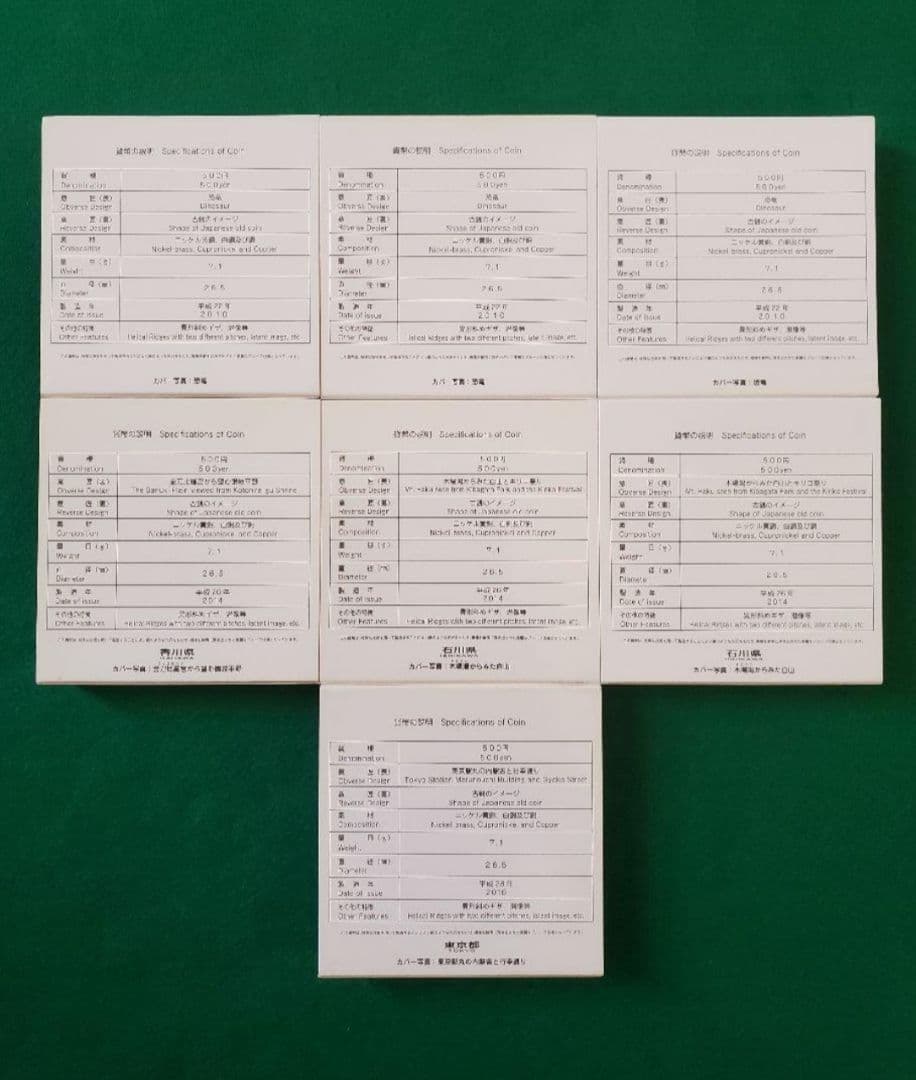 貨幣の説明 Specifications of Coin
貨種 500円
Denomination 500yen
意匠(表) 恐竜
Obverse Design Dinosaur
意匠(裏) 古銭のイメージ
Reverse Design Shape of Japanese old coin
素材 ニッケル黄銅、白銅及び銅
Composition Nickel-brass, Cupronickel and Copper
量目(g) 7.1
Weight
直径(㎜) 26.5
Diameter
製造年 平成22年
Date of Issue 2010
その他の特徴 異形斜めギザ、潜像等
Other Features Helical Ridges with two different pitches, latent image, etc.
カバー写真:恐竜
貨幣の説明 Specifications of Coin
貨種 500円
Denomination 500yen
意匠(表) 恐竜
Obverse Design Dinosaur
意匠(裏) 古銭のイメージ
Reverse Design Shape of Japanese old coin
素材 ニッケル黄銅、白銅及び銅
Composition Nickel-brass, Cupronickel and Copper
量目(g) 7.1
Weight
直径(㎜) 26.5
Diameter
製造年 平成22年
Date of Issue 2010
その他の特徴 異形斜めギザ、潜像等
Other Features Helical Ridges with two different pitches, latent image, etc.
カバー写真:恐竜
貨幣の説明 Specifications of Coin
貨種 500円
Denomination 500yen
意匠(表) 恐竜
Obverse Design Dinosaur
意匠(裏) 古銭のイメージ
Reverse Design Shape of Japanese old coin
素材 ニッケル黄銅、白銅及び銅
Composition Nickel-brass, Cupronickel and Copper
量目(g) 7.1
Weight
直径(㎜) 26.5
Diameter
製造年 平成22年
Date of Issue 2010
その他の特徴 異形斜めギザ、潜像等
Other Features Helical Ridges with two different pitches, latent image, etc.
カバー写真:恐竜
貨幣の説明 Specifications of Coin
貨種 500円
Denomination 500yen
意匠(表) 金刀比羅宮から望む讃岐平野
Obverse Design The Sanuki Plain viewed from Kotohira-gu Shrine
意匠(裏) 古銭のイメージ
Reverse Design Shape of Japanese old coin
素材 ニッケル黄銅、白銅及び銅
Composition Nickel-brass, Cupronickel and Copper
量目(g) 7.1
Weight
直径(㎜) 26.5
Diameter
製造年 平成26年
Date of Issue 2014
その他の特徴 異形斜めギザ、潜像等
Other Features Helical Ridges with two different pitches, latent image, etc.
香川県
カバー写真:金刀比羅宮から望む讃岐平野
貨幣の説明 Specifications of Coin
貨種 500円
Denomination 500yen
意匠(表) 木場潟からみた白山とキリコ祭り
Obverse Design Mt. Haku seen from Kibagata Park and the Kiriko Festival
意匠(裏) 古銭のイメージ
Reverse Design Shape of Japanese old coin
素材 ニッケル黄銅、白銅及び銅
Composition Nickel-brass, Cupronickel and Copper
量目(g) 7.1
Weight
直径(㎜) 26.5
Diameter
製造年 平成26年
Date of Issue 2014
その他の特徴 異形斜めギザ、潜像等
Other Features Helical Ridges with two different pitches, latent image, etc.
石川県
ISHIKAWA
カバー写真:木場潟からみた白山
貨幣の説明 Specifications of Coin
貨種 500円
Denomination 500yen
意匠(表) 木場潟からみた白山とキリコ祭り
Obverse Design Mt. Haku seen from Kibagata Park and the Kiriko Festival
意匠(裏) 古銭のイメージ
Reverse Design Shape of Japanese old coin
素材 ニッケル黄銅、白銅及び銅
Composition Nickel-brass, Cupronickel and Copper
量目(g) 7.1
Weight
直径(㎜) 26.5
Diameter
製造年 平成26年
Date of Issue 2014
その他の特徴 異形斜めギザ、潜像等
Other Features Helical Ridges with two different pitches, latent image, etc.
石川県
ISHIKAWA
カバー写真:木場潟からみた白山
貨幣の説明 Specifications of Coin
貨種 500円
Denomination 500yen
意匠(表) 東京駅丸の内駅舎と行幸通り
Obverse Design Tokyo Station Marunouchi Building and Gyoko Street
意匠(裏) 古銭のイメージ
Reverse Design Shape of Japanese old coin
素材 ニッケル黄銅、白銅及び銅
Composition Nickel-brass, Cupronickel and Copper
量目(g) 7.1
Weight
直径(㎜) 26.5
Diameter
製造年 平成28年
Date of Issue 2016
その他の特徴 異形斜めギザ、潜像等
Other Features Helical Ridges with two different pitches, latent image, etc.
東京都
TOKYO
カバー写真:東京駅丸の内駅舎と行幸通り